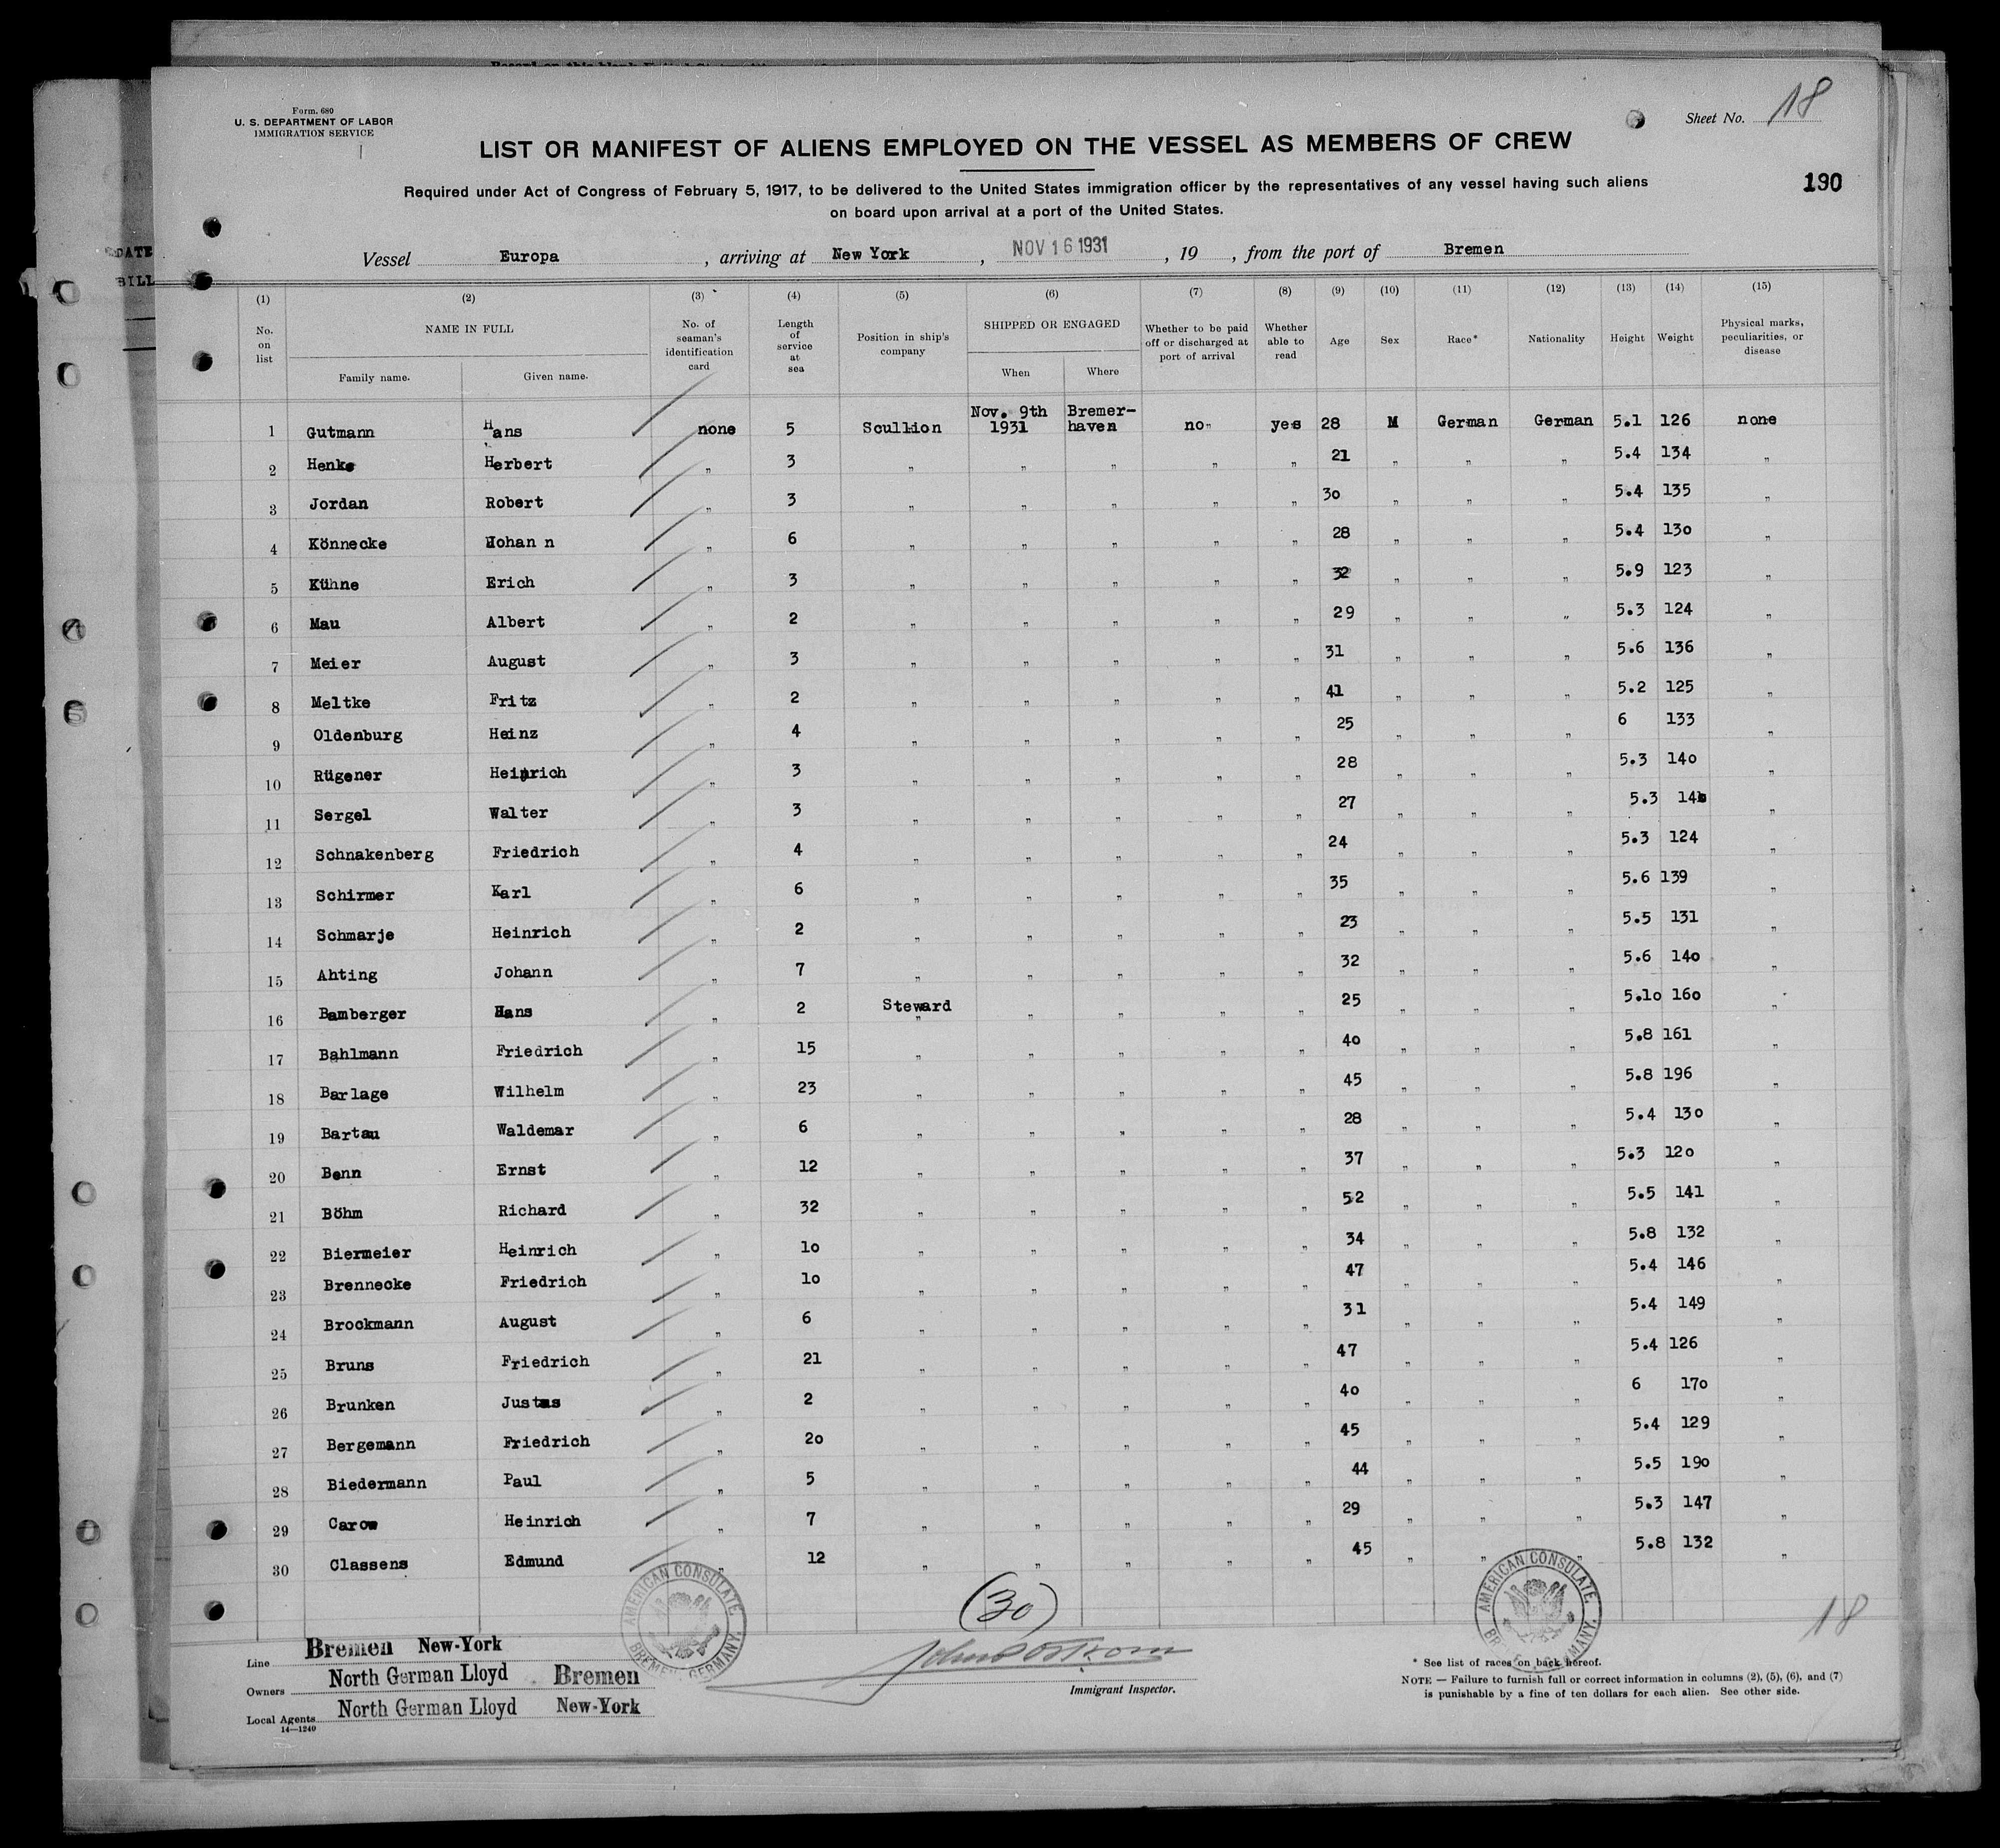 Form. 680
U. S. DEPARTMENT OF LABOR
IMMIGRATION SERVICE
Sheet No. 18
LIST OR MANIFEST OF ALIENS EMPLOYED ON THE VESSEL AS MEMBERS OF CREW
Required under Act of Congress of February 5, 1917, to be delivered to the United States immigration officer by the representatives of any vessel having such aliens
on board upon arrival at a port of the United States.
190
DATE
BILL
Vessel Europa, arriving at New York, NOV 16 1931, 19 , from the port of Bremen
(1) (2) (3) (4) (5) (6) (7) (8) (9) (10) (11) (12) (13) (14) (15)
No. on list NAME IN FULL Family name. Given name. No. of seaman's identification card Length of service at sea Position in ship's company SHIPPED OR ENGAGED When Where Whether to be paid off or discharged at port of arrival Whether able to read Age Sex Race* Nationality Height Weight Physical marks, peculiarities, or disease
1 Gutmann Hans none 5 Scullion Nov. 9th 1931 Bremer-haven no yes 28 M German German 5.1 126 none
2 Henke Herbert " 3 " " " " " 21 " " " 5.4 134 "
3 Jordan Robert " 3 " " " " " 30 " " " 5.4 135 "
4 Könnecke Johan n " 6 " " " " " 28 " " " 5.4 130 "
5 Kühne Erich " 3 " " " " " 32 " " " 5.9 123 "
6 Mau Albert " 2 " " " " " 29 " " " 5.3 124 "
7 Meier August " 3 " " " " " 31 " " " 5.6 136 "
8 Meltke Fritz " 2 " " " " " 41 " " " 5.2 125 "
9 Oldenburg Heinz " 4 " " " " " 25 " " " 6 133 "
10 Rügener Heinrich " 3 " " " " " 28 " " " 5.3 140 "
11 Sergel Walter " 3 " " " " " 27 " " " 5.3 "
12 Schnakenberg Friedrich " 4 " " " " " 24 " " " 5.3 124 "
13 Schirmer Karl " 6 " " " " " 35 " " " 5.6 139 "
14 Schmarje Heinrich " 2 " " " " " 23 " " " 5.5 131 "
15 Ahting Johann " 7 " " " " " 32 " " " 5.6 140 "
16 Bamberger Hans " 2 Steward " " " " " 25 " " " 5.10 160 "
17 Bahlmann Friedrich " 15 " " " " " 40 " " " 5.8 161 "
18 Barlage Wilhelm " 23 " " " " " 45 " " " 5.8 196 "
19 Bartau Waldemar " 6 " " " " " 28 " " " 5.4 130 "
20 Benn Ernst " 12 " " " " " 37 " " " 5.3 120 "
21 Böhm Richard " 32 " " " " " 52 " " " 5.5 141 "
22 Biermeier Heinrich " 10 " " " " " 34 " " " 5.8 132 "
23 Brennecke Friedrich " 10 " " " " " 47 " " " 5.4 146 "
24 Brockmann August " 6 " " " " " 31 " " " 5.4 149 "
25 Bruns Friedrich " 21 " " " " " 47 " " " 5.4 126 "
26 Brunken Justas " 2 " " " " " 40 " " " 6 170 "
27 Bergemann Friedrich " 20 " " " " " 45 " " " 5.4 129 "
28 Biedermann Paul " 5 " " " " " 44 " " " 5.5 190 "
29 Carow Heinrich " 7 " " " " " 29 " " " 5.3 147 "
30 Classens Edmund " 12 " " " " " 45 " " " 5.8 132 "
AMERICAN CONSULATE BREMEN, GERMANY.
(30)
AMERICAN CONSULATE GERMANY.
18
Line Bremen New-York
Owners North German Lloyd Bremen
Local Agents North German Lloyd New-York
14—1240
Immigrant Inspector.
* See list of races on back hereof.
NOTE — Failure to furnish full or correct information in columns (2), (5), (6), and (7)
is punishable by a fine of ten dollars for each alien. See other side.